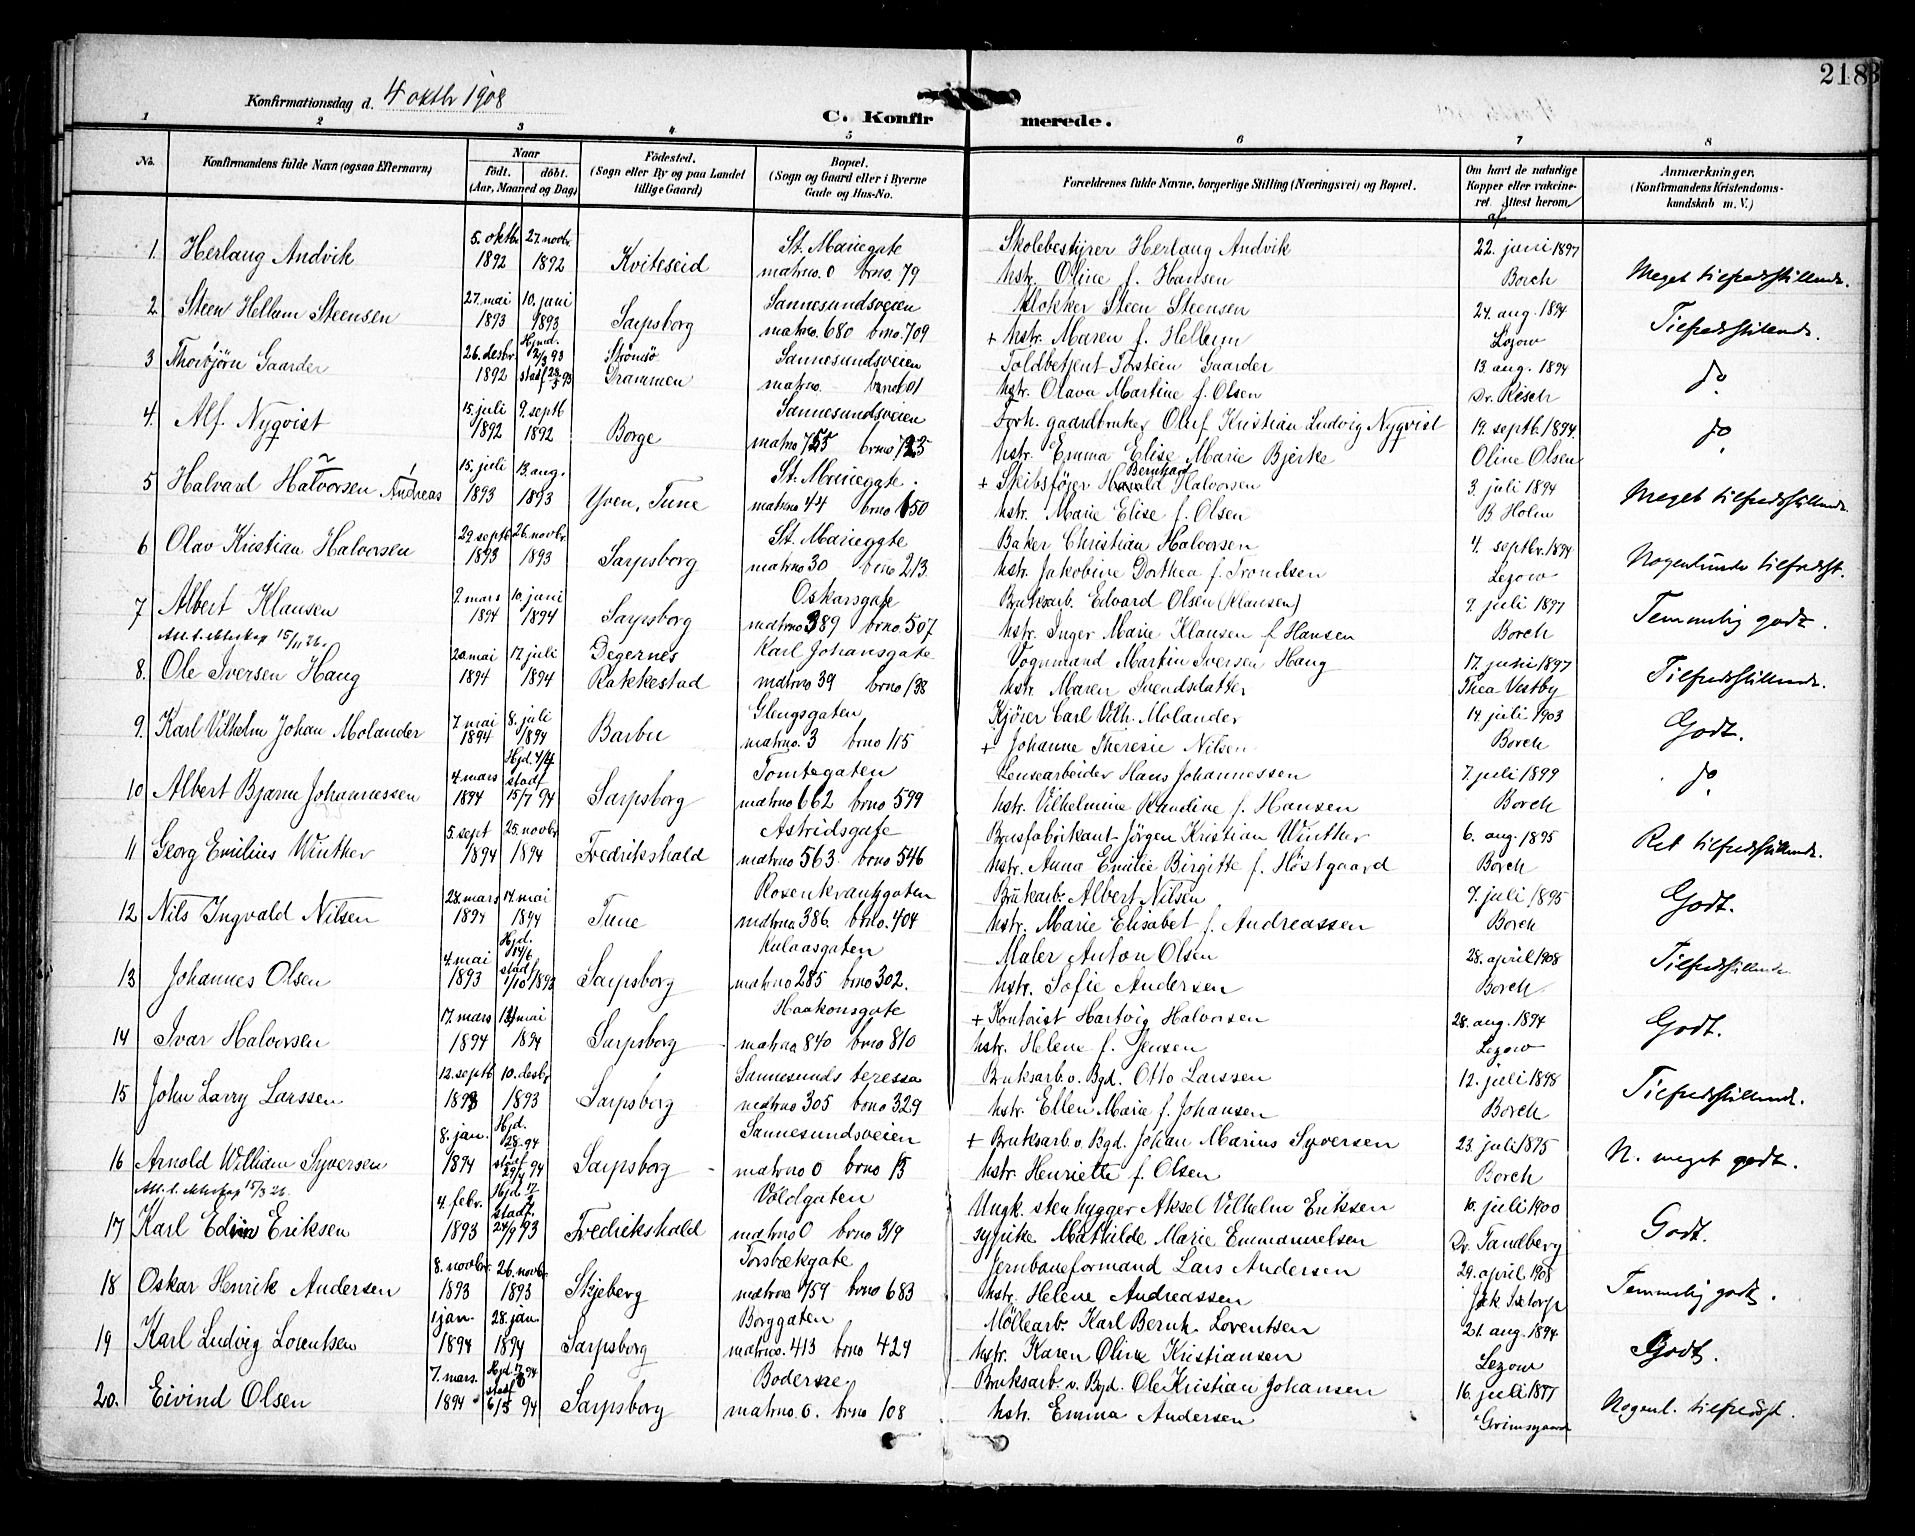 218
Konfirmationsdag d. 4 oktbr 1908
C. Konfirmerede.
1 2 3 4 5 6 7 8
No. Konfirmandens fulde Navn (ogsaa Efternavn) Naar födt. döbt. (Aar, Maaned og Dag) Födested. (Sogn eller By og paa Landet tillige Gaard) Bopæl. (Sogn og Gaard eller i Byerne Gade og Hus-No. Forældrenes fulde Navne, borgerlige Stilling (Næringsvei) og Bopæl. Om havt de naturlige Kopper eller vakcineret. Attest herom af Anmærkninger. (Konfirmandens Kristendomskundskab m. V.)
5. oktbr. 27. novbr. St. Mariegate Skolebestyrer Herlaug Andvik 22. juni 1897
1. Herlaug Andvik 1892 1892 Kviteseid matrno. 0 brno. 79 hstr. Oline f. Hansen Borch Meget tilfredsstillende.
27. mai 10. juni Sannesundsveien Klokker Steen Steensen 24. aug. 1894
2. Steen Hellum Steensen 1893 1893 Sarpsborg matrno. 680 brno. 709 + hstr. Maren f. Hellum Lezow Tilfredsstillende.
26. desbr. Hjmd. 2/3 93 Strömsö Sannesundsveien Toldbetjent Torstein Gaarder 13. aug. 1894
3 Thorbjörn Gaarder 1892 stadf. 28/5 93 Drammen matrno. brno 101 hstr. Olava Martine f. Olsen Dr. Risch do.
15. juli 9. septb Sannesundsveien Forh. gaardbruker Oluf Kristian Ludvig Nyqvist 19. septb. 1894.
4. Alf. Nyqvist 1892 1892 Borge matrno 755 brno 725 hstr. Emma Elise Marie Bjerke Oline Olsen do.
15. juli 13. aug. St. Mariegate. + Skibsförer Bernhard Halvorsen 3. juli 1894
5 Halvard Halvorsen Andreas 1893 1893 Yven, Tune matrno 44 brno 650 hstr. Marie Elise f. Olsen B Holm Meget tilfredsstillende.
29. septb 26. novbr. St. Mariegate Baker Christian Halvorsen 4. septbr. 1894
6 Olav Kristian Halvorsen 1893 1893 Sarpsborg matrno 30 brno 213. hstr. Jakobine Dorthea f. Trondsen Lezow Nogenlunde tilfredsst.
9. mars 10. juni Oskarsgate Bruksarb. Edvard Olsen (Klausen) 9. juli 1897
7 Albert Klausen 1894 1894 Sarpsborg matrno 389 brno. 507 hstr. Inger Marie Klausen f Hansen Borch Temmelig godt.
Att. t. ekteskap 15/11 26.
20. mai 17. juli Degernes Karl Johansgate Vognmand Martin Iversen Haug 17. juni 1897
8. Ole Iversen Haug 1894 1894 Rakkestad matrno 39 brno 138 hstr. Maren Svendsdatter Thea Vestby Tilfredsstillende.
7. mai 8. juli Glengsgaten Kjörer Carl Vilh. Molander 14 juli 1903
9. Karl Vilhelm Johan Molander 1894 1894 Barbu matrno. 3 brno 115 + Johanne Theresie Nilsen Borch Godt.
4. mars Hjd. 4/4 stadf. Tomtegaten Lensearbeider Hans Johannessen 7. juli 1899
10 Albert Bjarne Johannessen 1894 15/7 94 Sarpsborg matrno 662 brno 599 hstr. Vilhelmine Randine f. Hansen Borch do.
5. sept 25. novbr Astridsgate Brusfabrikant Jörgen Kristian Winther 6. aug. 1895
11 Georg Emilius Winther 1894 1894 Fredrikshald matrno 563. brno 546 hstr. Anna Emilie Birgitte f. Höstgaard Borch Ret tilfredsstillende.
28. mars 14. mai Rosenkrantzgaten Brukarb. Albert Nilsen 9. juli 1895
12 Nils Ingvald Nilsen 1894 1894 Tune matrno 386. brno. 404 hstr. Marie Elisabet f. Andreassen Borch Godt.
4. mai Hjd. 14/6 Kulaasgaten Maler Anton Olsen 28. april 1908
13 Johannes Olsen 1893 stadf. 1/10 1893 Sarpsborg matrno 285 brno 302. hstr. Sofie Andersen Borch Tilfredsstillende
17. mars 13. mai Haakonsgate + Kontorist Hartvig Halvorsen 28. aug. 1894
14 Ivar Halvorsen 1894 1894 Sarpsborg matrno 840 brno 810 hstr. Helene f. Jensen Lezow Godt.
12. septb 10. desbr Sannesunds teresse Bruksarb. o. Bgd. Otto Larssen 12. juli 1898
15 John Larry Larssen 1893 1893 Sarpsborg matrno 305 brno 329 hstr. Ellen Marie f. Johansen Borch Tilfredsstillende.
8. jan. Hjd. 28. 94 Sannesundsveien + Bruksarb. o. Bgd. Johan Marius Syversen 23. juli 1895
16 Arnold William Syversen 1894 stadf. 29/4 94 Sarpsborg matrno 0 brno 15 hstr. Henriette f. Olsen Borch N. meget godt.
Att. t. ekteskap 15/3 26.
4. febr. Hjd. 17/2 stadf. Voldgaten Ungk. stenhugger Aksel Vilhelm Eriksen 10. juli 1900
17 Karl Edvin Eriksen 1893 24/9 93 Fredrikshald matrno 0 brno 319 sypike Mathilde Marie Emmanuelsen Dr. Tandberg Godt.
8. novbr. 26. novbr. Torsbækgate Jernbaneformand Lars Andersen 29. april 1908
18 Oskar Henrik Andersen 1893 1893 Skjeberg matrno 759 brno 683 hstr. Helene Andreassen Temmelig godt.
1 jan. 28. jan. Borggaten Möllearb. Karl Bernh. Lorentsen 21. aug. 1894
19 Karl Ludvig Lorentsen 1894 1894 Sarpsborg matrno. 413 brno 429 hstr. Karen Oline Kristiansen Lezow Godt.
7. mars. Hjd. 94 stadf. Bruksarb. o. Bgd. Ole Kristian Johansen 16. juli
20. Eivind Olsen 1894 94 Sarpsborg matrno. 0. brno 108 hstr. Emma Andersen Grimsgaard Nogenl. tilfredsst.